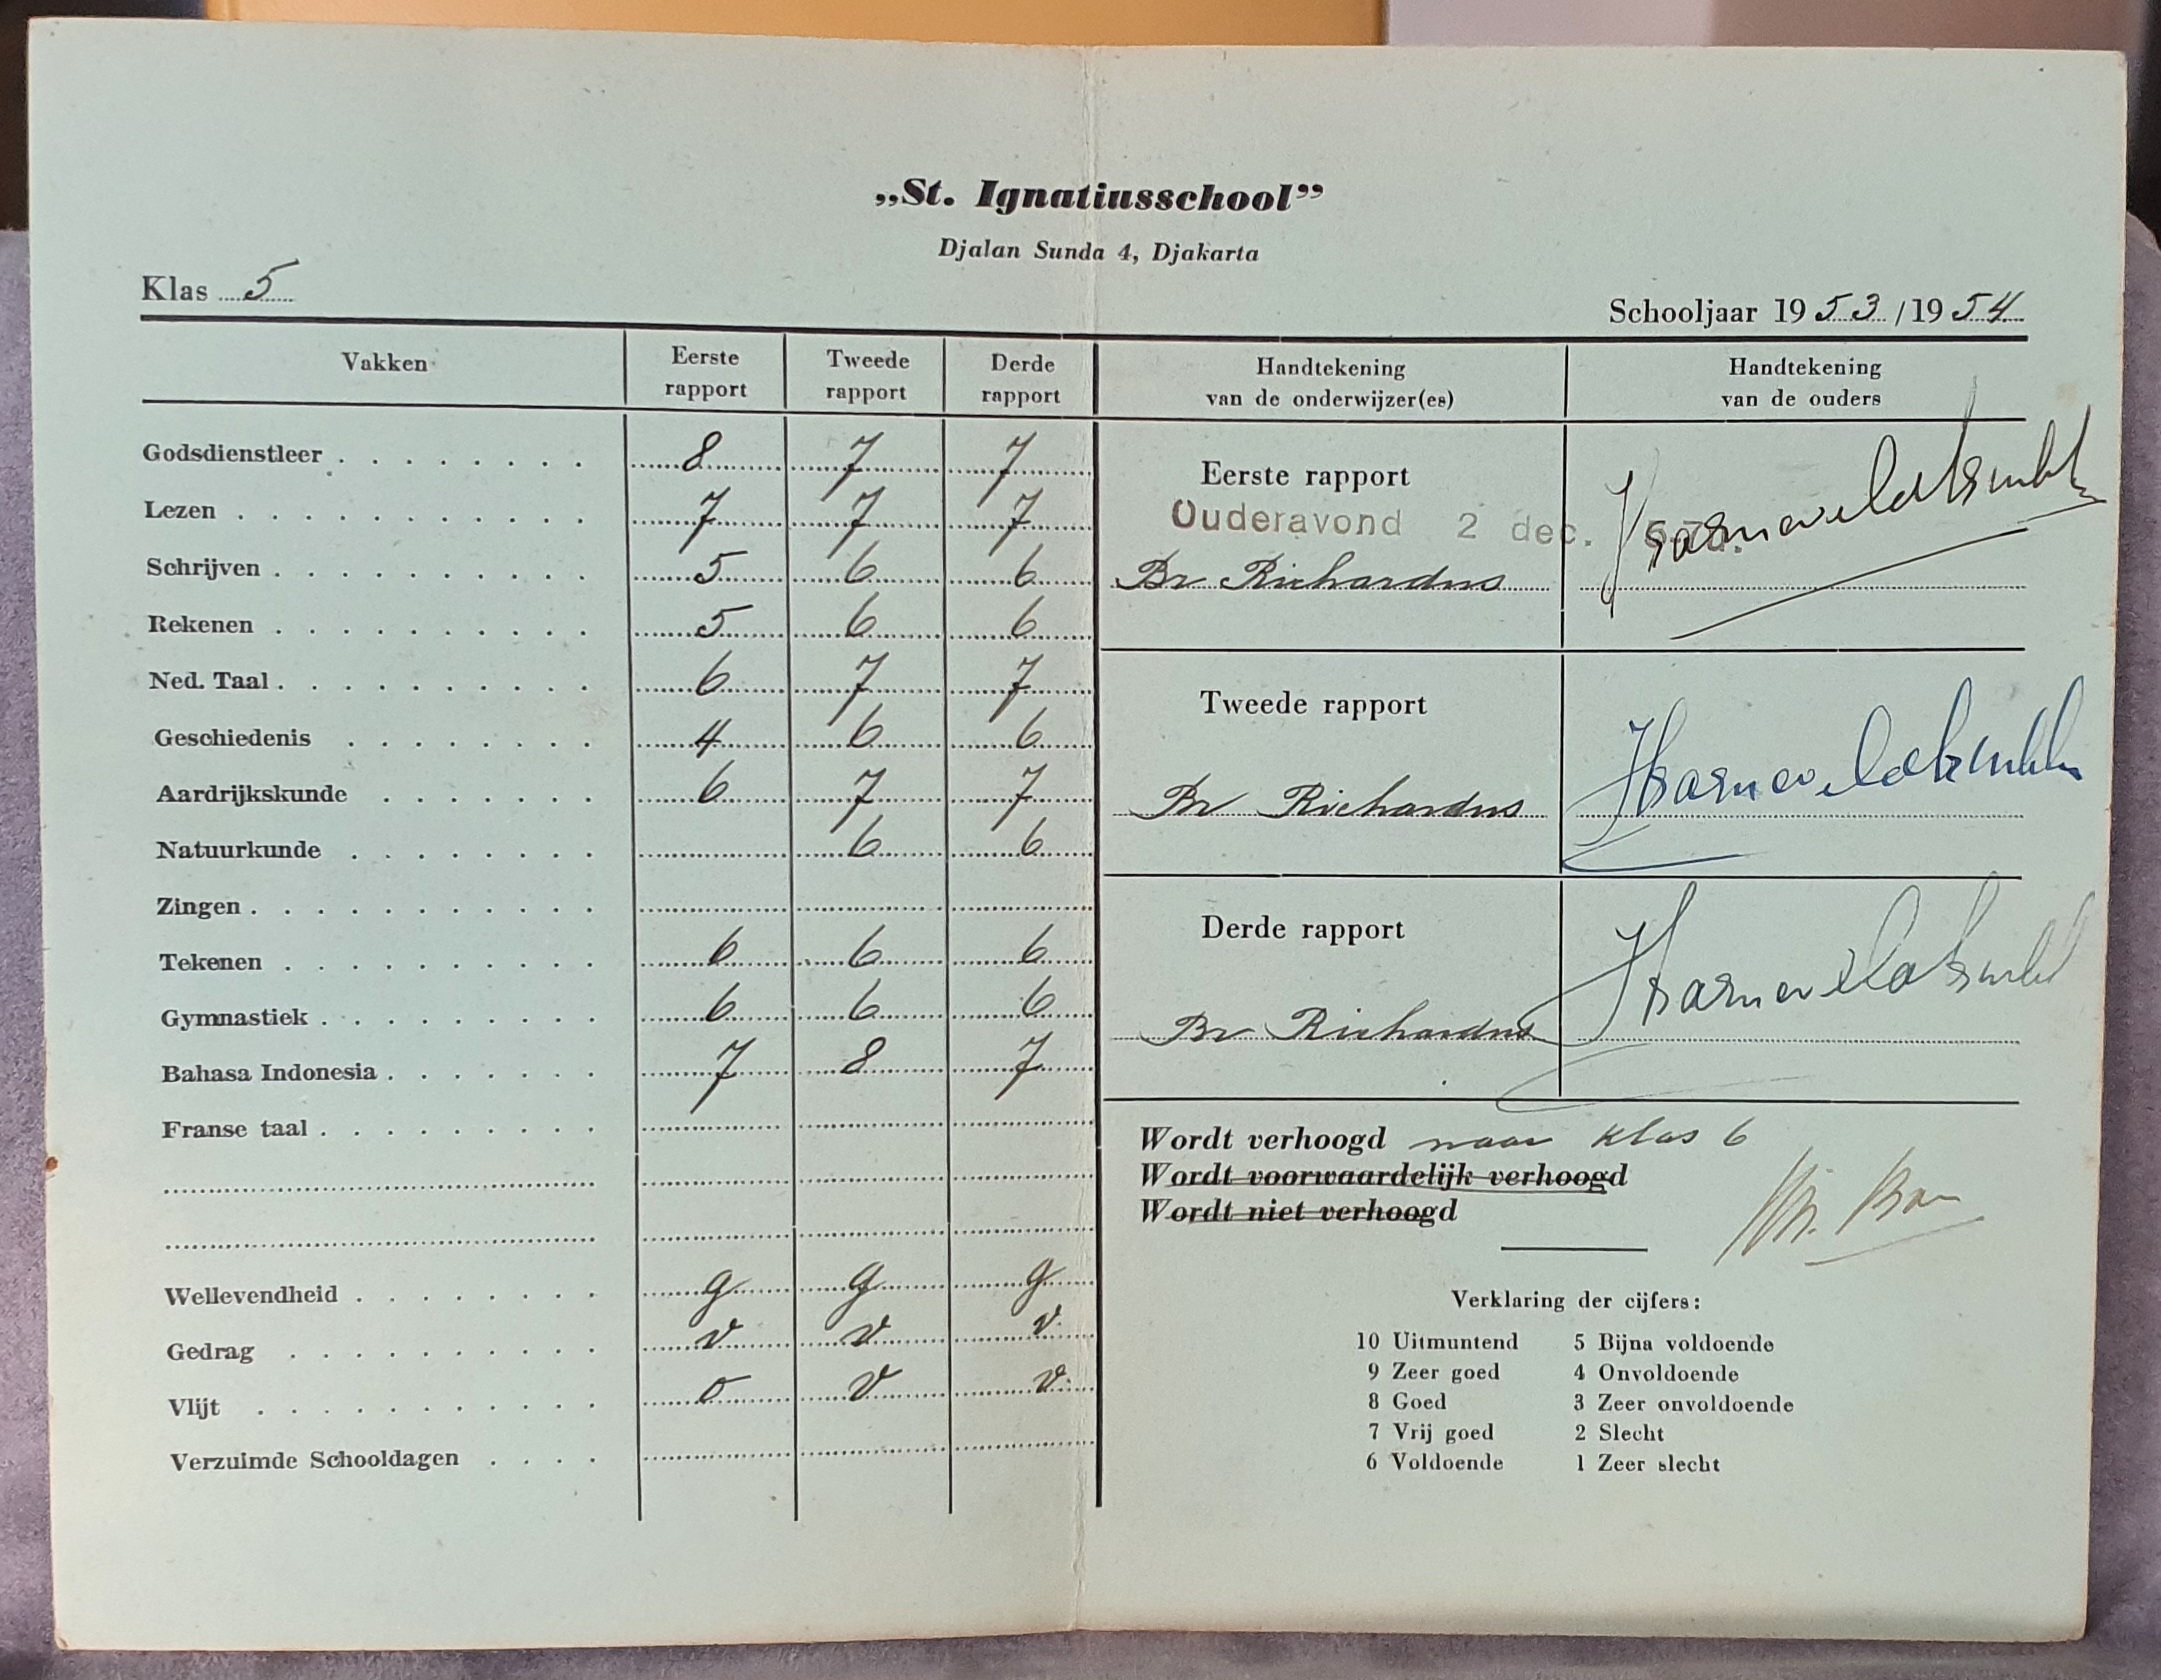 „St. Ignatiusschool”
Djalan Sunda 4, Djakarta
Klas 5
Schooljaar 1953/1954
Vakken Eerste rapport Tweede rapport Derde rapport
Godsdienstleer 8 7 7
Lezen 7 7 7
Schrijven 5 6 6
Rekenen 5 6 6
Ned. Taal 6 7 7
Geschiedenis 4 6 6
Aardrijkskunde 6 7 7
Natuurkunde 6 6
Zingen
Tekenen 6 6 6
Gymnastiek 6 6 6
Bahasa Indonesia 7 8 7
Franse taal
Wellevendheid g g g
Gedrag v v v
Vlijt o v v
Verzuimde Schooldagen
Handtekening van de onderwijzer(es)
Handtekening van de ouders
Eerste rapport
Ouderavond 2 dec.
Br Richardus
Tweede rapport
Br Richardus
Derde rapport
Br Richardus
Wordt verhoogd naar klas 6
Wordt voorwaardelijk verhoogd
Wordt niet verhoogd
Verklaring der cijfers:
10 Uitmuntend 5 Bijna voldoende
9 Zeer goed 4 Onvoldoende
8 Goed 3 Zeer onvoldoende
7 Vrij goed 2 Slecht
6 Voldoende 1 Zeer slecht